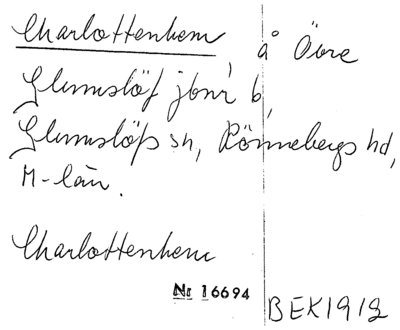 Charlottenhem, å Övre
Glumslöf jbnr 6,
Glumslöfs sn, Rönnebergs hd,
M-län.
Charlottenhem
Nr 16694
BEK1912